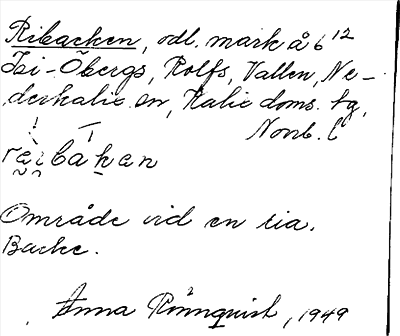 Ribacken, odl. mark å 6 12
Isi-Öbergs, Rolfs, Vallen, Ne-
derkalix sn, Kalix doms. tg,
Norrb. l
Område vid en lia.
Backe.
Anna Rönnquist, 1949